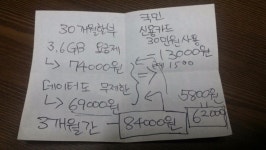 30개월할부
3.6GB 요금제
↳ 74000원
데이터도 무제한
↳ 69000원
3개월간
84000원
국민
신용카드
30만원 사용
13000원
1500
5800원
62000